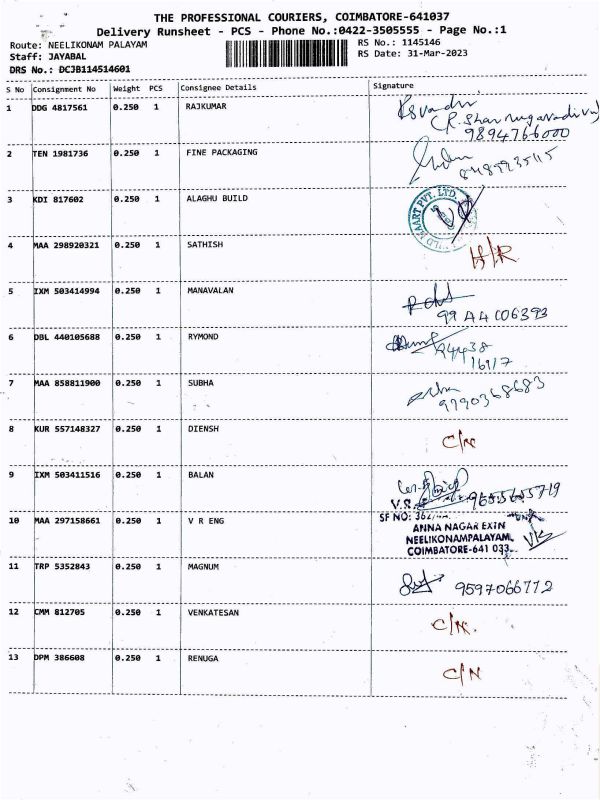 THE PROFESSIONAL COURIERS, COIMBATORE-641037
Delivery Runsheet - PCS - Phone No.:0422-3505555 - Page No.:1
Route: NEELIKONAM PALAYAM
RS No.: 1145146
Staff: JAYABAL
RS Date: 31-Mar-2023
DRS No.: DCJB114514601
S No Consignment No Weight PCS Consignee Details Signature
1 DDG 4817561 0.250 1 RAJKUMAR
9894766000
2 TEN 1981736 0.250 1 FINE PACKAGING
3 KDI 817602 0.250 1 ALAGHU BUILD
MAART PVT. LTD.
4 MAA 298920321 0.250 1 SATHISH H/R
5 IXM 503414994 0.250 1 MANAVALAN
6 DBL 440105688 0.250 1 RYMOND
7 MAA 858811900 0.250 1 SUBHA
9790368683
8 KUR 557148327 0.250 1 DIENSH C/N
9 IXM 503411516 0.250 1 BALAN
V.R.
10 MAA 297158661 0.250 1 V R ENG
SF NO:
ANNA NAGAR EXTN
NEELIKONAMPALAYAM,
COIMBATORE-641 033.
11 TRP 5352843 0.250 1 MAGNUM
9597066772
12 CMM 812705 0.250 1 VENKATESAN C/N.
13 DPM 386608 0.250 1 RENUGA C/N